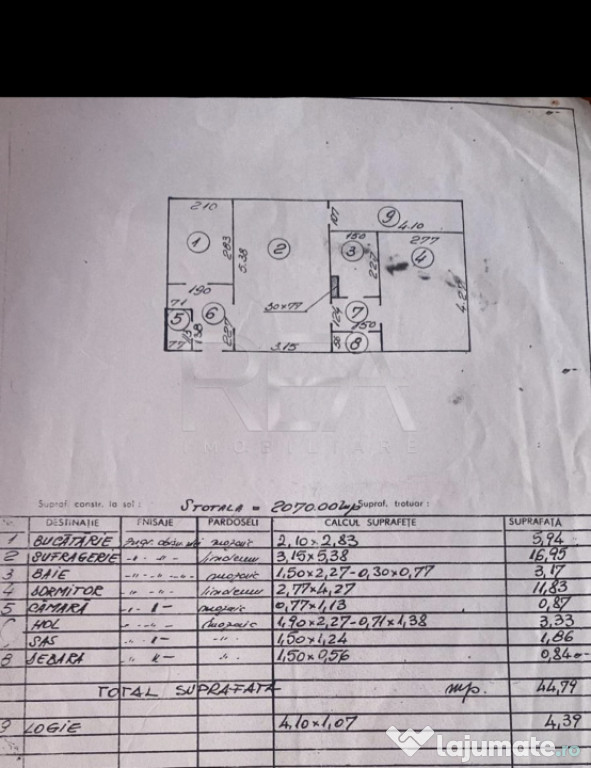 210
107
9
4.10
1
283
5.38
2
150
3
227
277
4
4.27
190
71
30x77
5
6
124
7
150
138
227
77
56
8
3.15
REA
IMOBILIARE
Supraf. constr. la sol :
STOTALA = 2070.00mp
Supraf. trotuar :
DESTINAȚIE FINISAJE PARDOSELI CALCUL SUPRAFEȚE SUPRAFAȚĂ
1 BUCĂTĂRIE mozaic 2,10x2,83 5,94
2 SUFRAGERIE -"- -"- linoleum 3,15x5,38 16,95
3 BAIE -"- -"- mozaic 1,50x2,27-0,30x0,77 3,17
4 DORMITOR -"- -"- linoleum 2,77x4,27 11,83
5 CĂMARĂ -"- mozaic 0,77x1,13 0,87
HOL -"- mozaic 1,90x2,27-0,71x1,38 3,33
SAS -"- -"- 1,50x1,24 1,86
8 DEBARA -"- -"- 1,50x0,56 0,84
TOTAL SUPRAFATA mp. 44,79
9 LOGIE 4,10x1,07 4,39
lajumate.ro